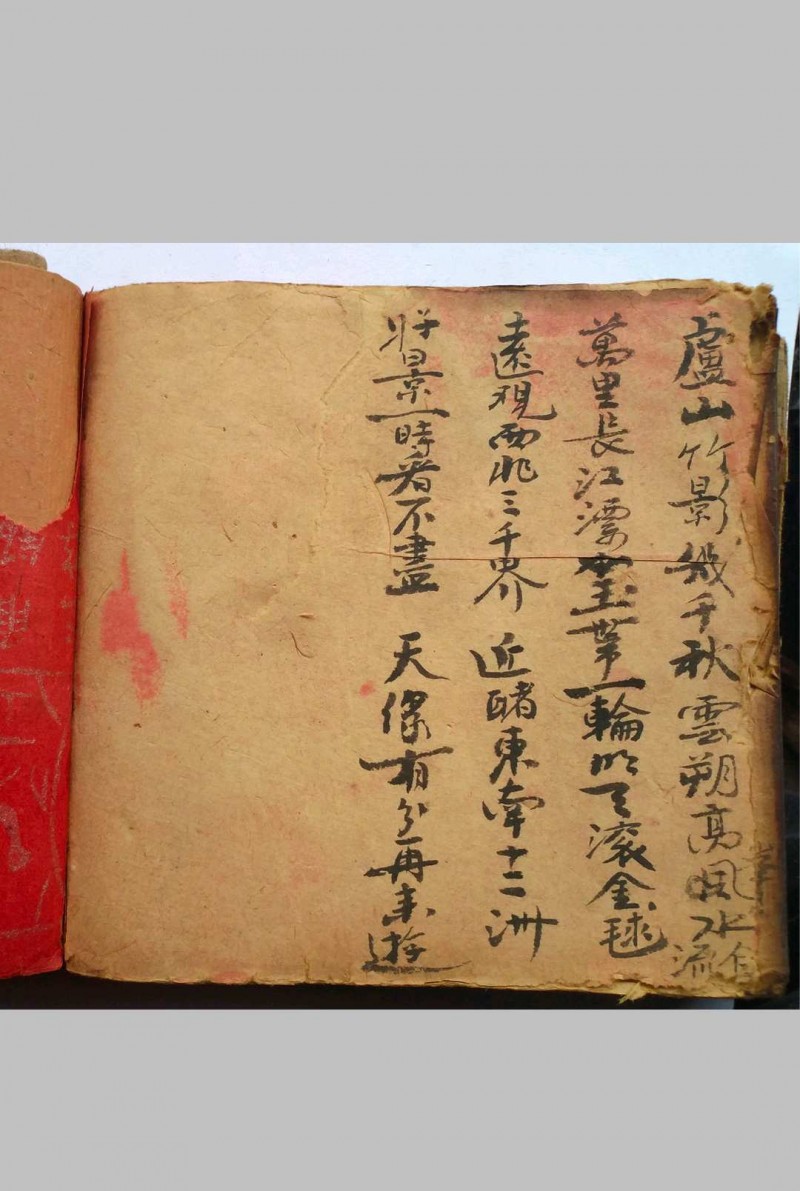 盧山竹影幾千秋雲朔高風水自流
萬里長江漂玉華一輪明月滾金球
遠視西北三千界 近睹東南十二洲
好景一時看不盡 天緣有分再來遊